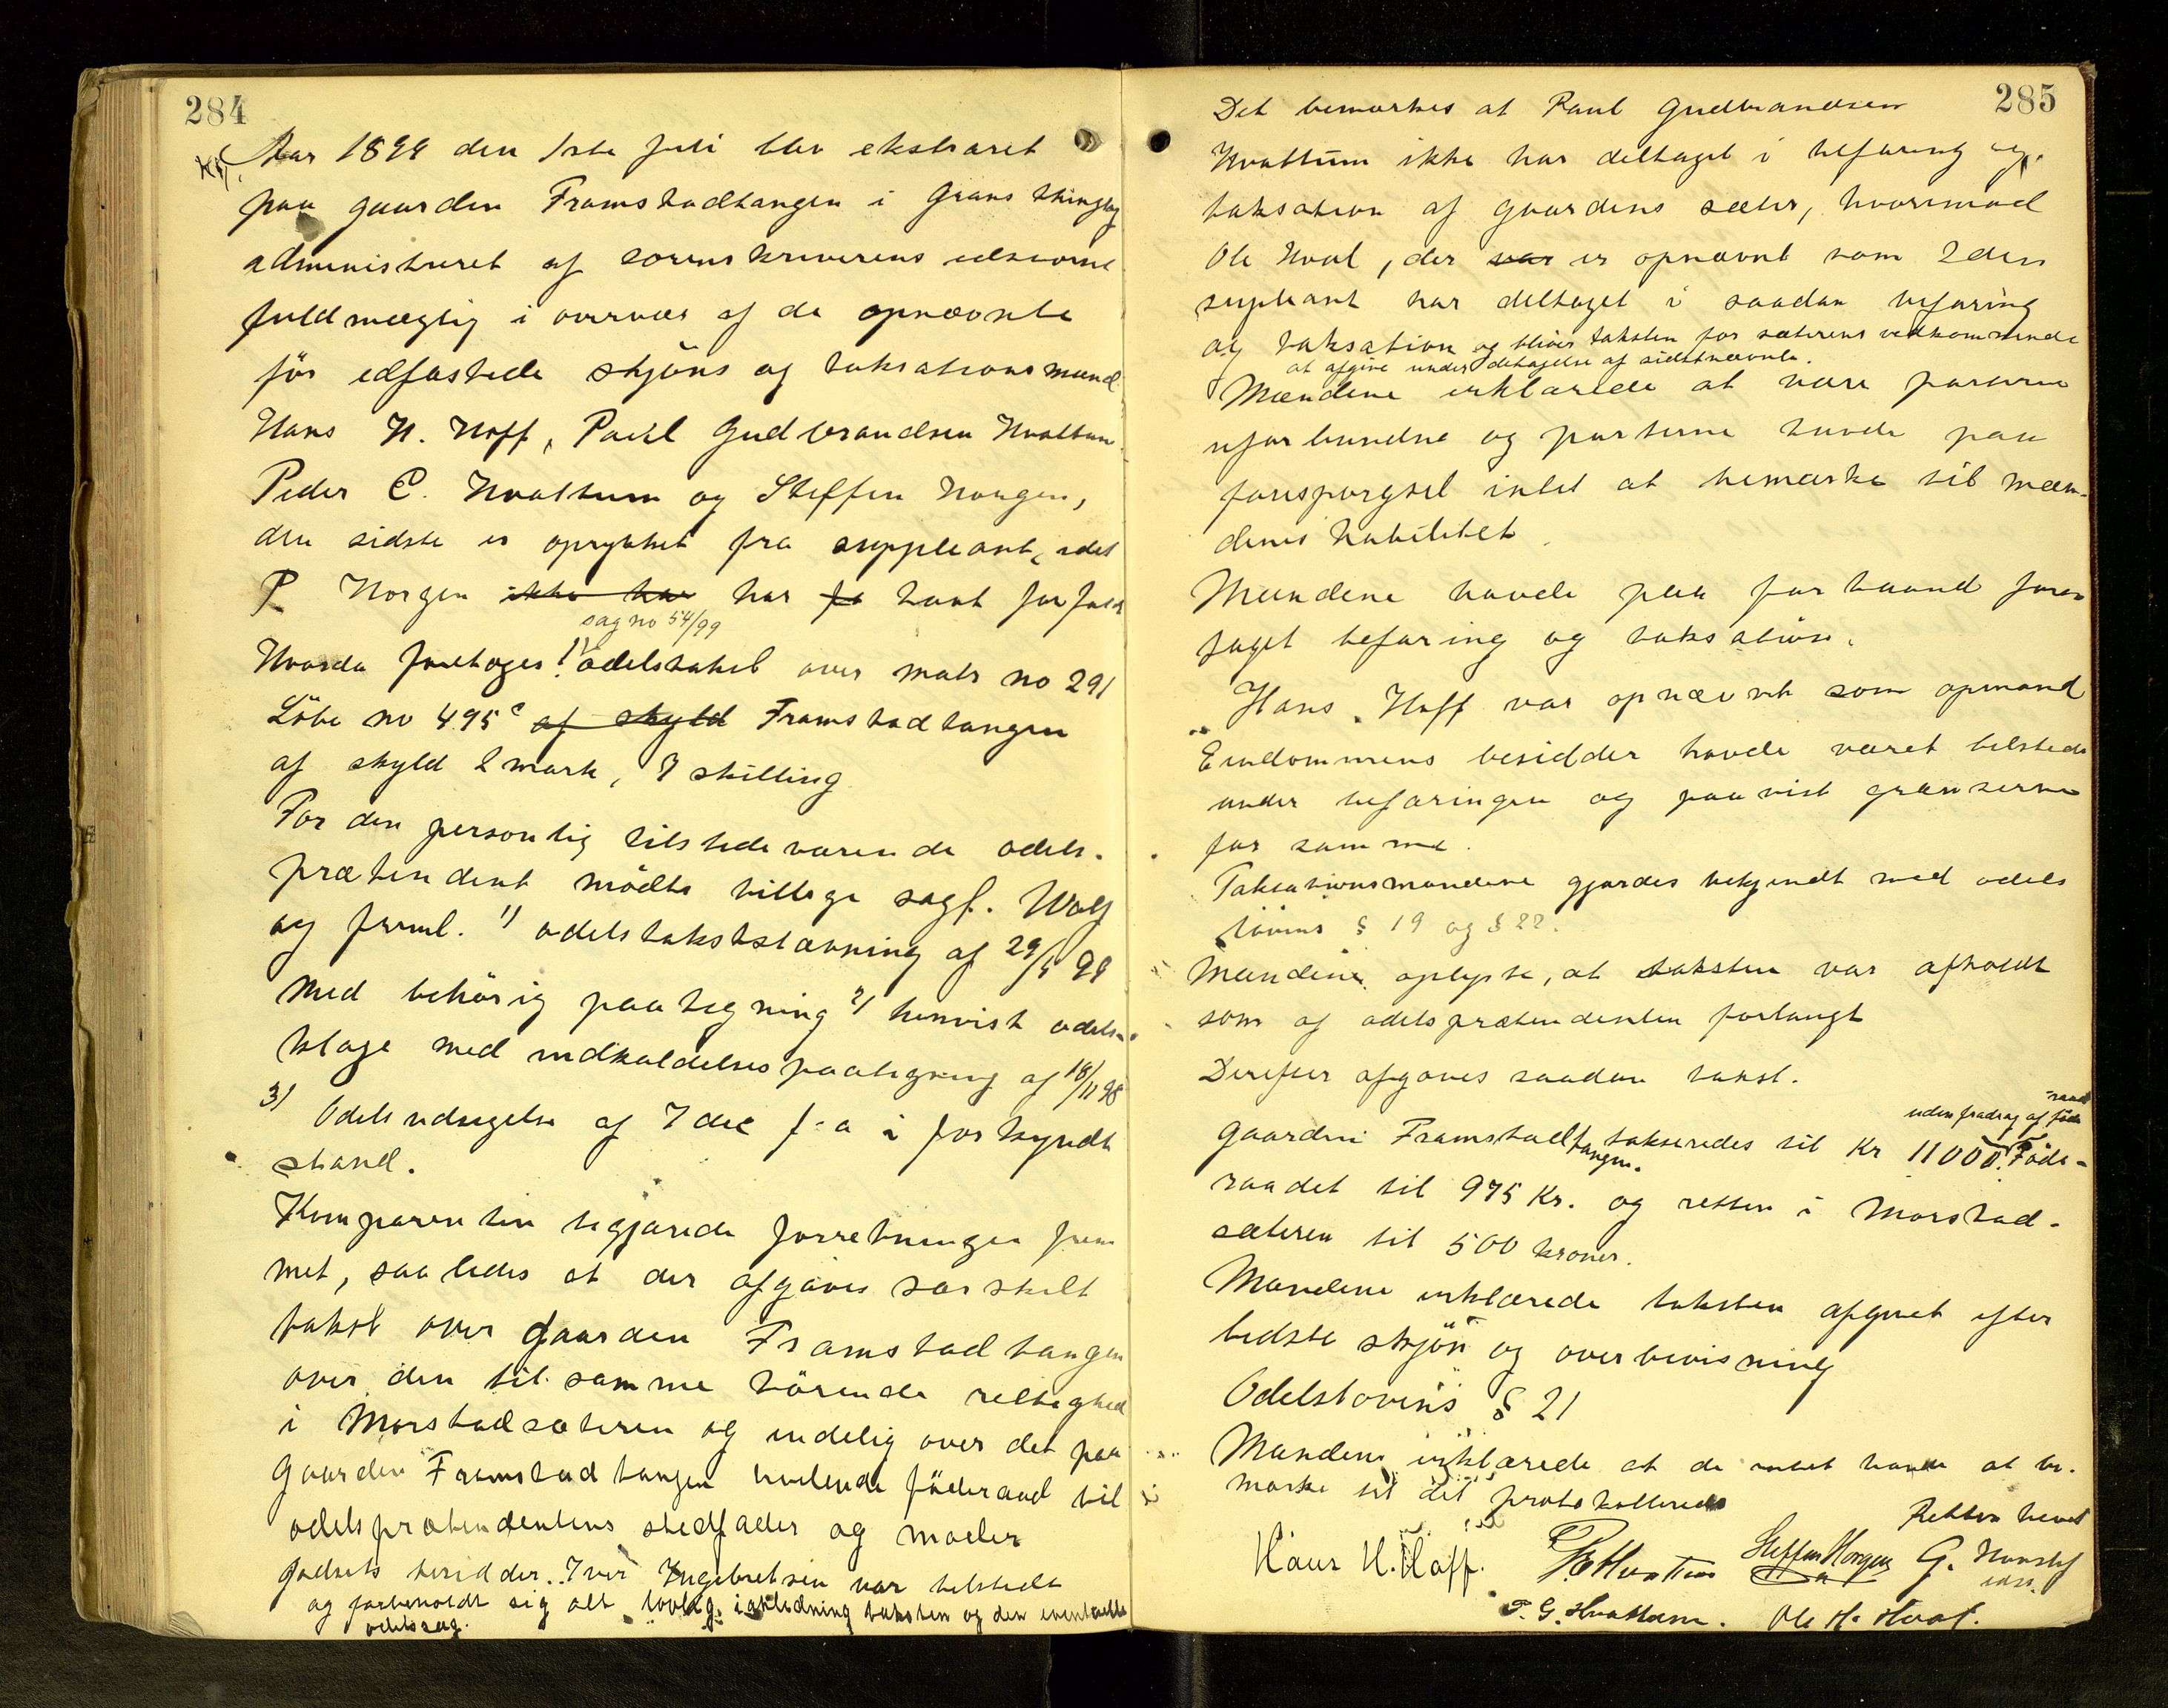 284
Aar 1899 den 1ste juli blev ekstraret
paa gaarden Framstadtangen i Grans thinglag
administreret af sorenskriverens edsvorne
fuldmægtig i overvær af de opnævnte
før edfæstede skjøns og taksationsmænd
Hans H. Hoff, Paul Gudbrandsen Hvattum
Peder E. Hvattum og Steffen Horgen,
den sidste er oprykket fra suppleant, idet
P Horgen ikke har har fo havt forfald
sag no 54/99
Hvorda foretoges 1) odelstakst over matr no 291
Løbe no 495c af skyld Framstadtangen
af skyld 2 mark, 7 skilling
For den personlig tilstedeværende odels-
prætendent mødte tillige sagf. Wolf
og freml. 1) odelstakststævning af 29/4 99
med behørig paategning 2) henvist odels-
klage med indkaldelsespaategning af 18/11 98
3) Odelsudsigelse af 7 dec f: a i forkyndt
stand.
Komparenten begjærede forretningen frem
met, saaledes at der afgives særskilt
takst over gaarden Framstadtangen
over den til samme hørende rettighed
i Morstadsæteren og endelig over det paa
Gaarden Framstadtangen hvilende føderaad til
odelsprætendentens stedfader og moder
Godsets besidder Iver Ingebretsen var tilstede
og forbeholdt sig alt lovlig i anledning taksten og den eventuelle
odelssag.
285
Det bemærkes at Paul Gudbrandsen
Hvattum ikke har deltaget i befaring og
taksation af gaardens sæter, hvorimod
Ole Hval, der var er opnævnt som 2den
supleant har deltaget i saadan befaring
og taksation og bliver taksten for sæterens vedkommende
at afgive under deltagelse af sidstnævnte.
Mændene erklærede at være parterne
uforbundne og parterne havde paa
forespørgsel intet at bemærke til mæn-
denes habilitet.
Mændene havde paa forhaand fore-
taget befaring og taksation.
Hans Hoff var opnævnt som opmand
Eiendommens besidder havde været tilstede
under befaringen og paavist grænserne
for samme.
Taksationsmændene gjordes bekjendt med odels
lovens § 19 og § 22.
Mændene oplyste, at taksten var afholdt
som af odelsprætendenten forlangt
Derefter afgaves saadan takst.
uden fradrag af føde
raad
Gaarden Framstadtangen takseredes til Kr 11000. Føde-
raadet til 975 Kr. og retten i Morstad-
sæteren til 500 kroner.
Mændene erklærede taksten afgivet efter
bedste skjøn og overbevisning
Odelslovens § 21
Mændene erklærede at de intet havde at be-
mærke til det protokollerede
Retten hævet
Hans H. Hoff. P E Hvattum Steffen Horgen G.
P. G. Hvattum. Ole H. Hval.